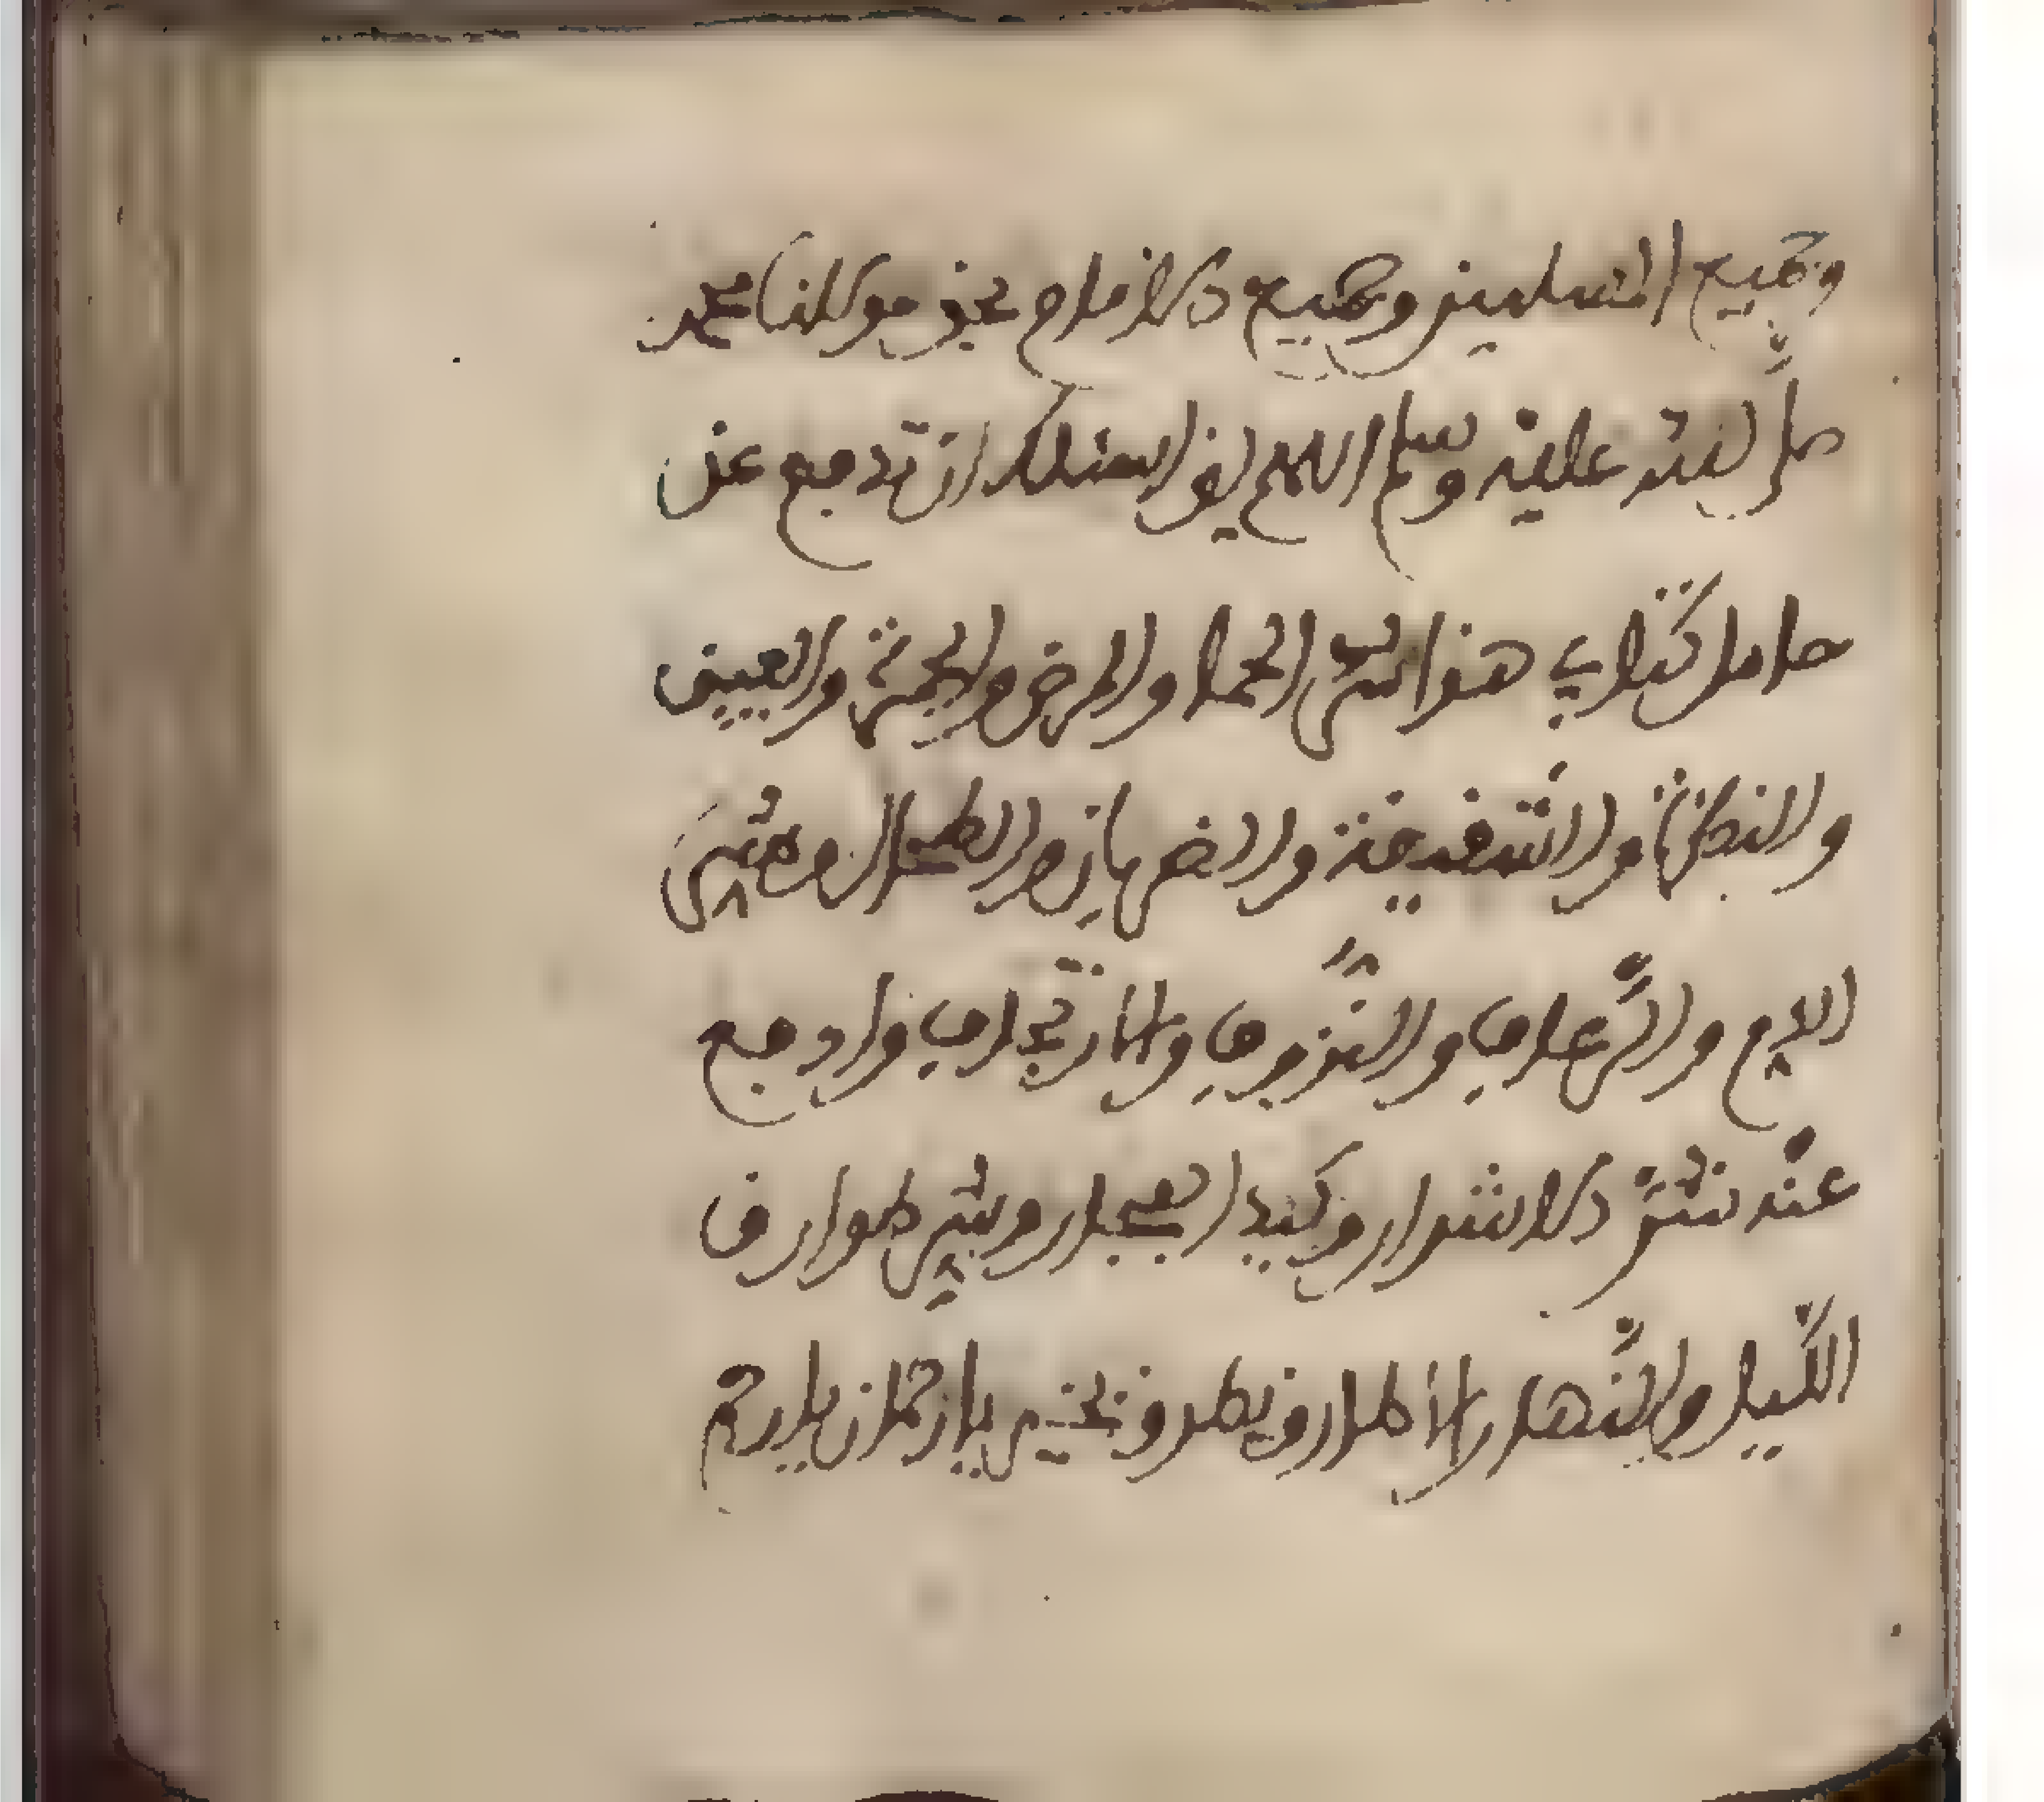 وجميع المسلمين وجميع الارماح بحق مولانا محمد
صلى الله عليه وسلم اللهم اني اسئلك ان تدفع عن
حامل كتابي هذا شر الحما والمرض والعين
والنظرة والشقيقة والضربان والطحال وشر
الدم والرعاف والنزيف وادفع
عنه شر الاشرار وكيد الفجار وشر طوارق
اليل والنهار الا طارق يطرق بخير يا رحمان يا رحيم